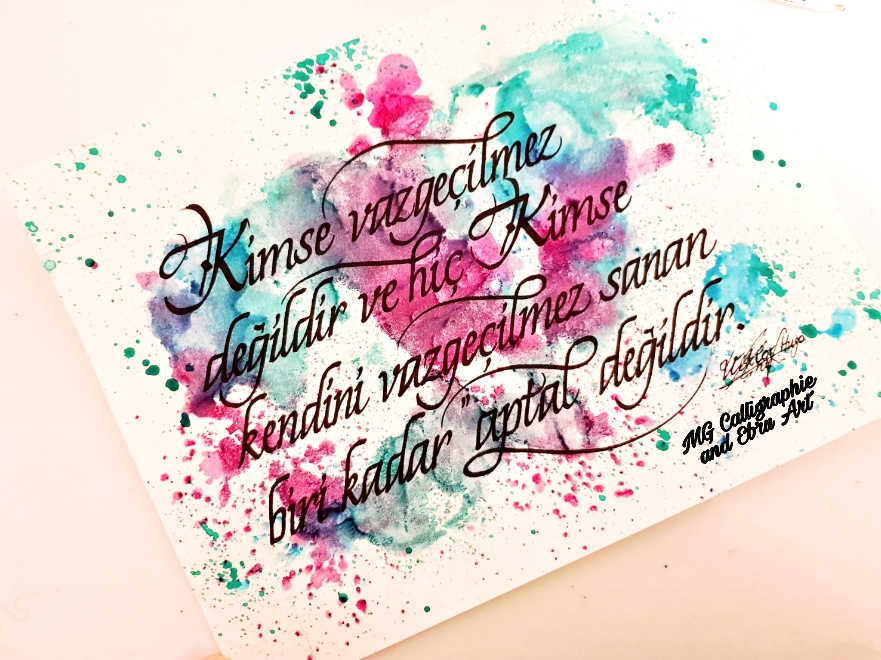 Kimse vazgeçilmez
değildir ve hiç Kimse
kendini vazgeçilmez sanan
biri kadar " aptal değildir.
Victor Hugo
MG Calligraphie
and Ebru Art